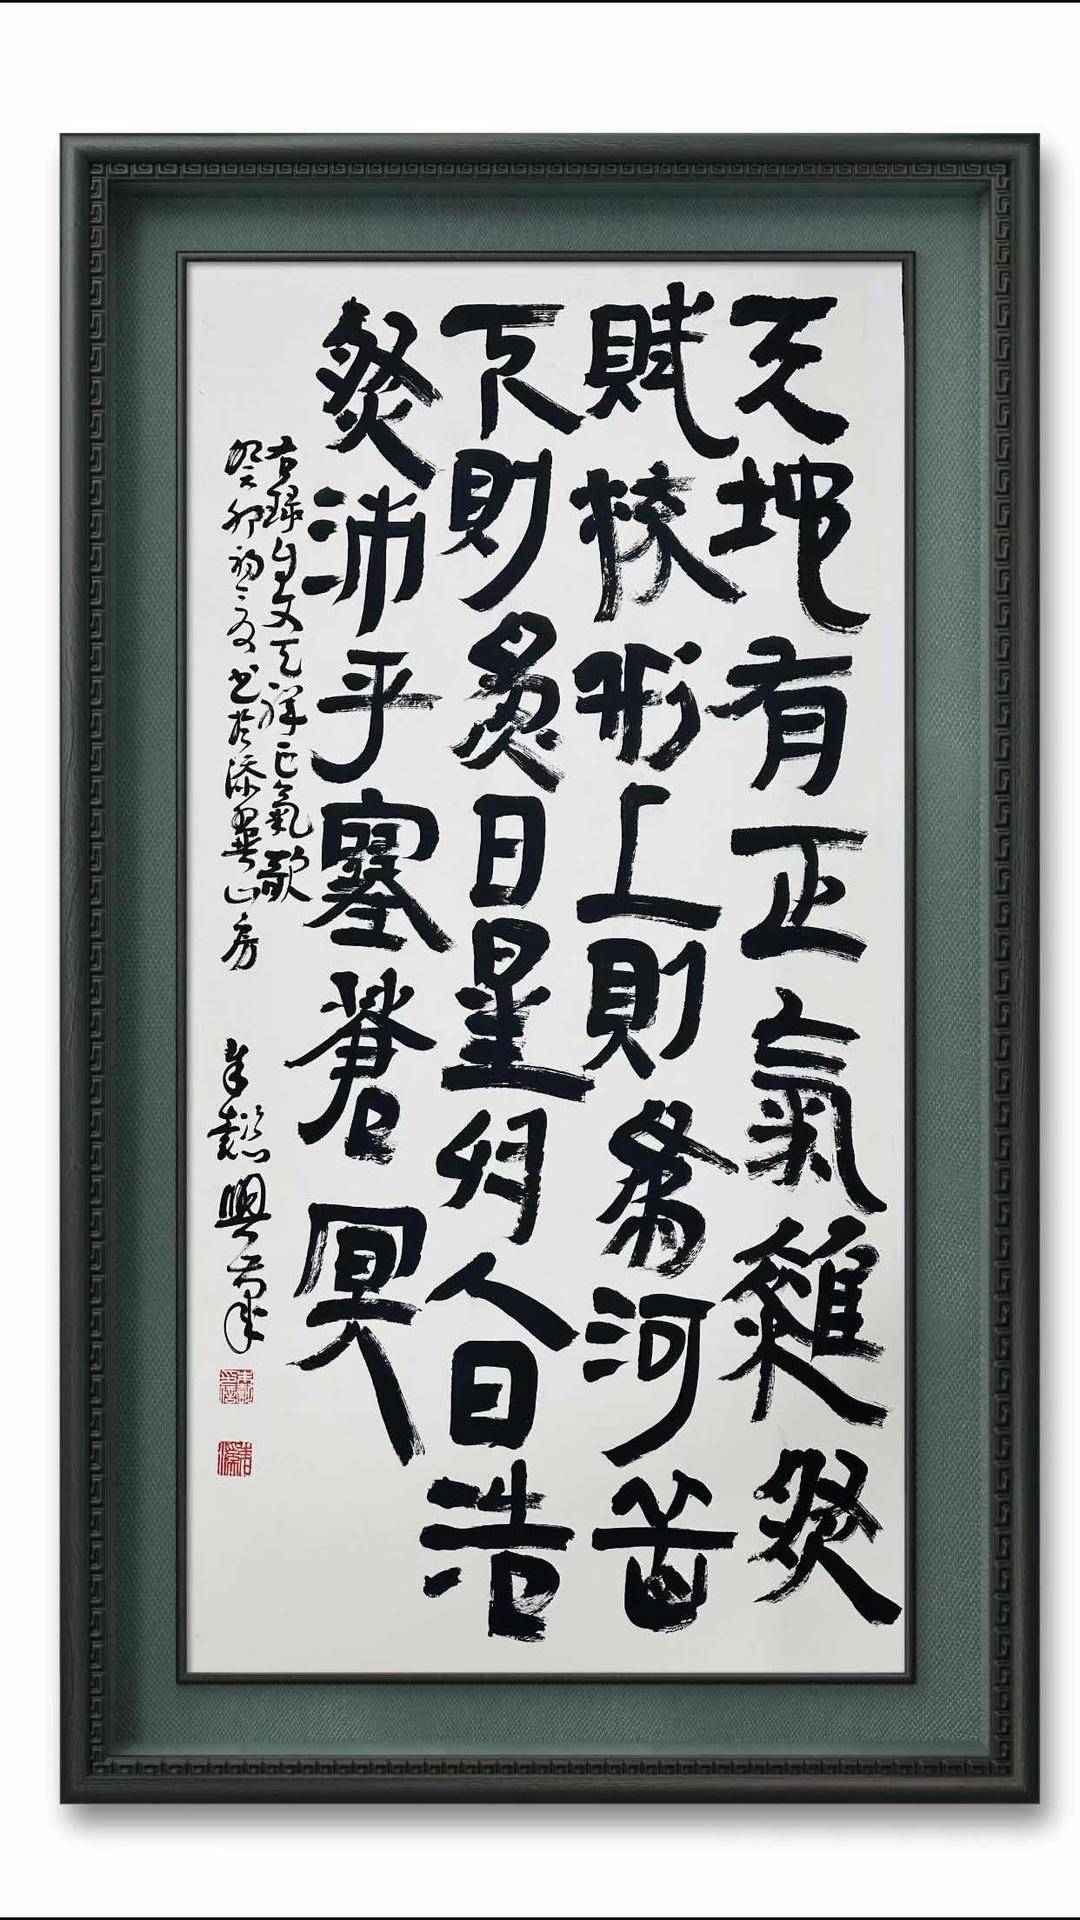 天地有正氣雜然
賦流形上則為河岳
下則為日星於人曰浩
然沛乎塞蒼冥
右錄自文天祥正氣歌
癸卯初夏书於添翠山房 朱懿興